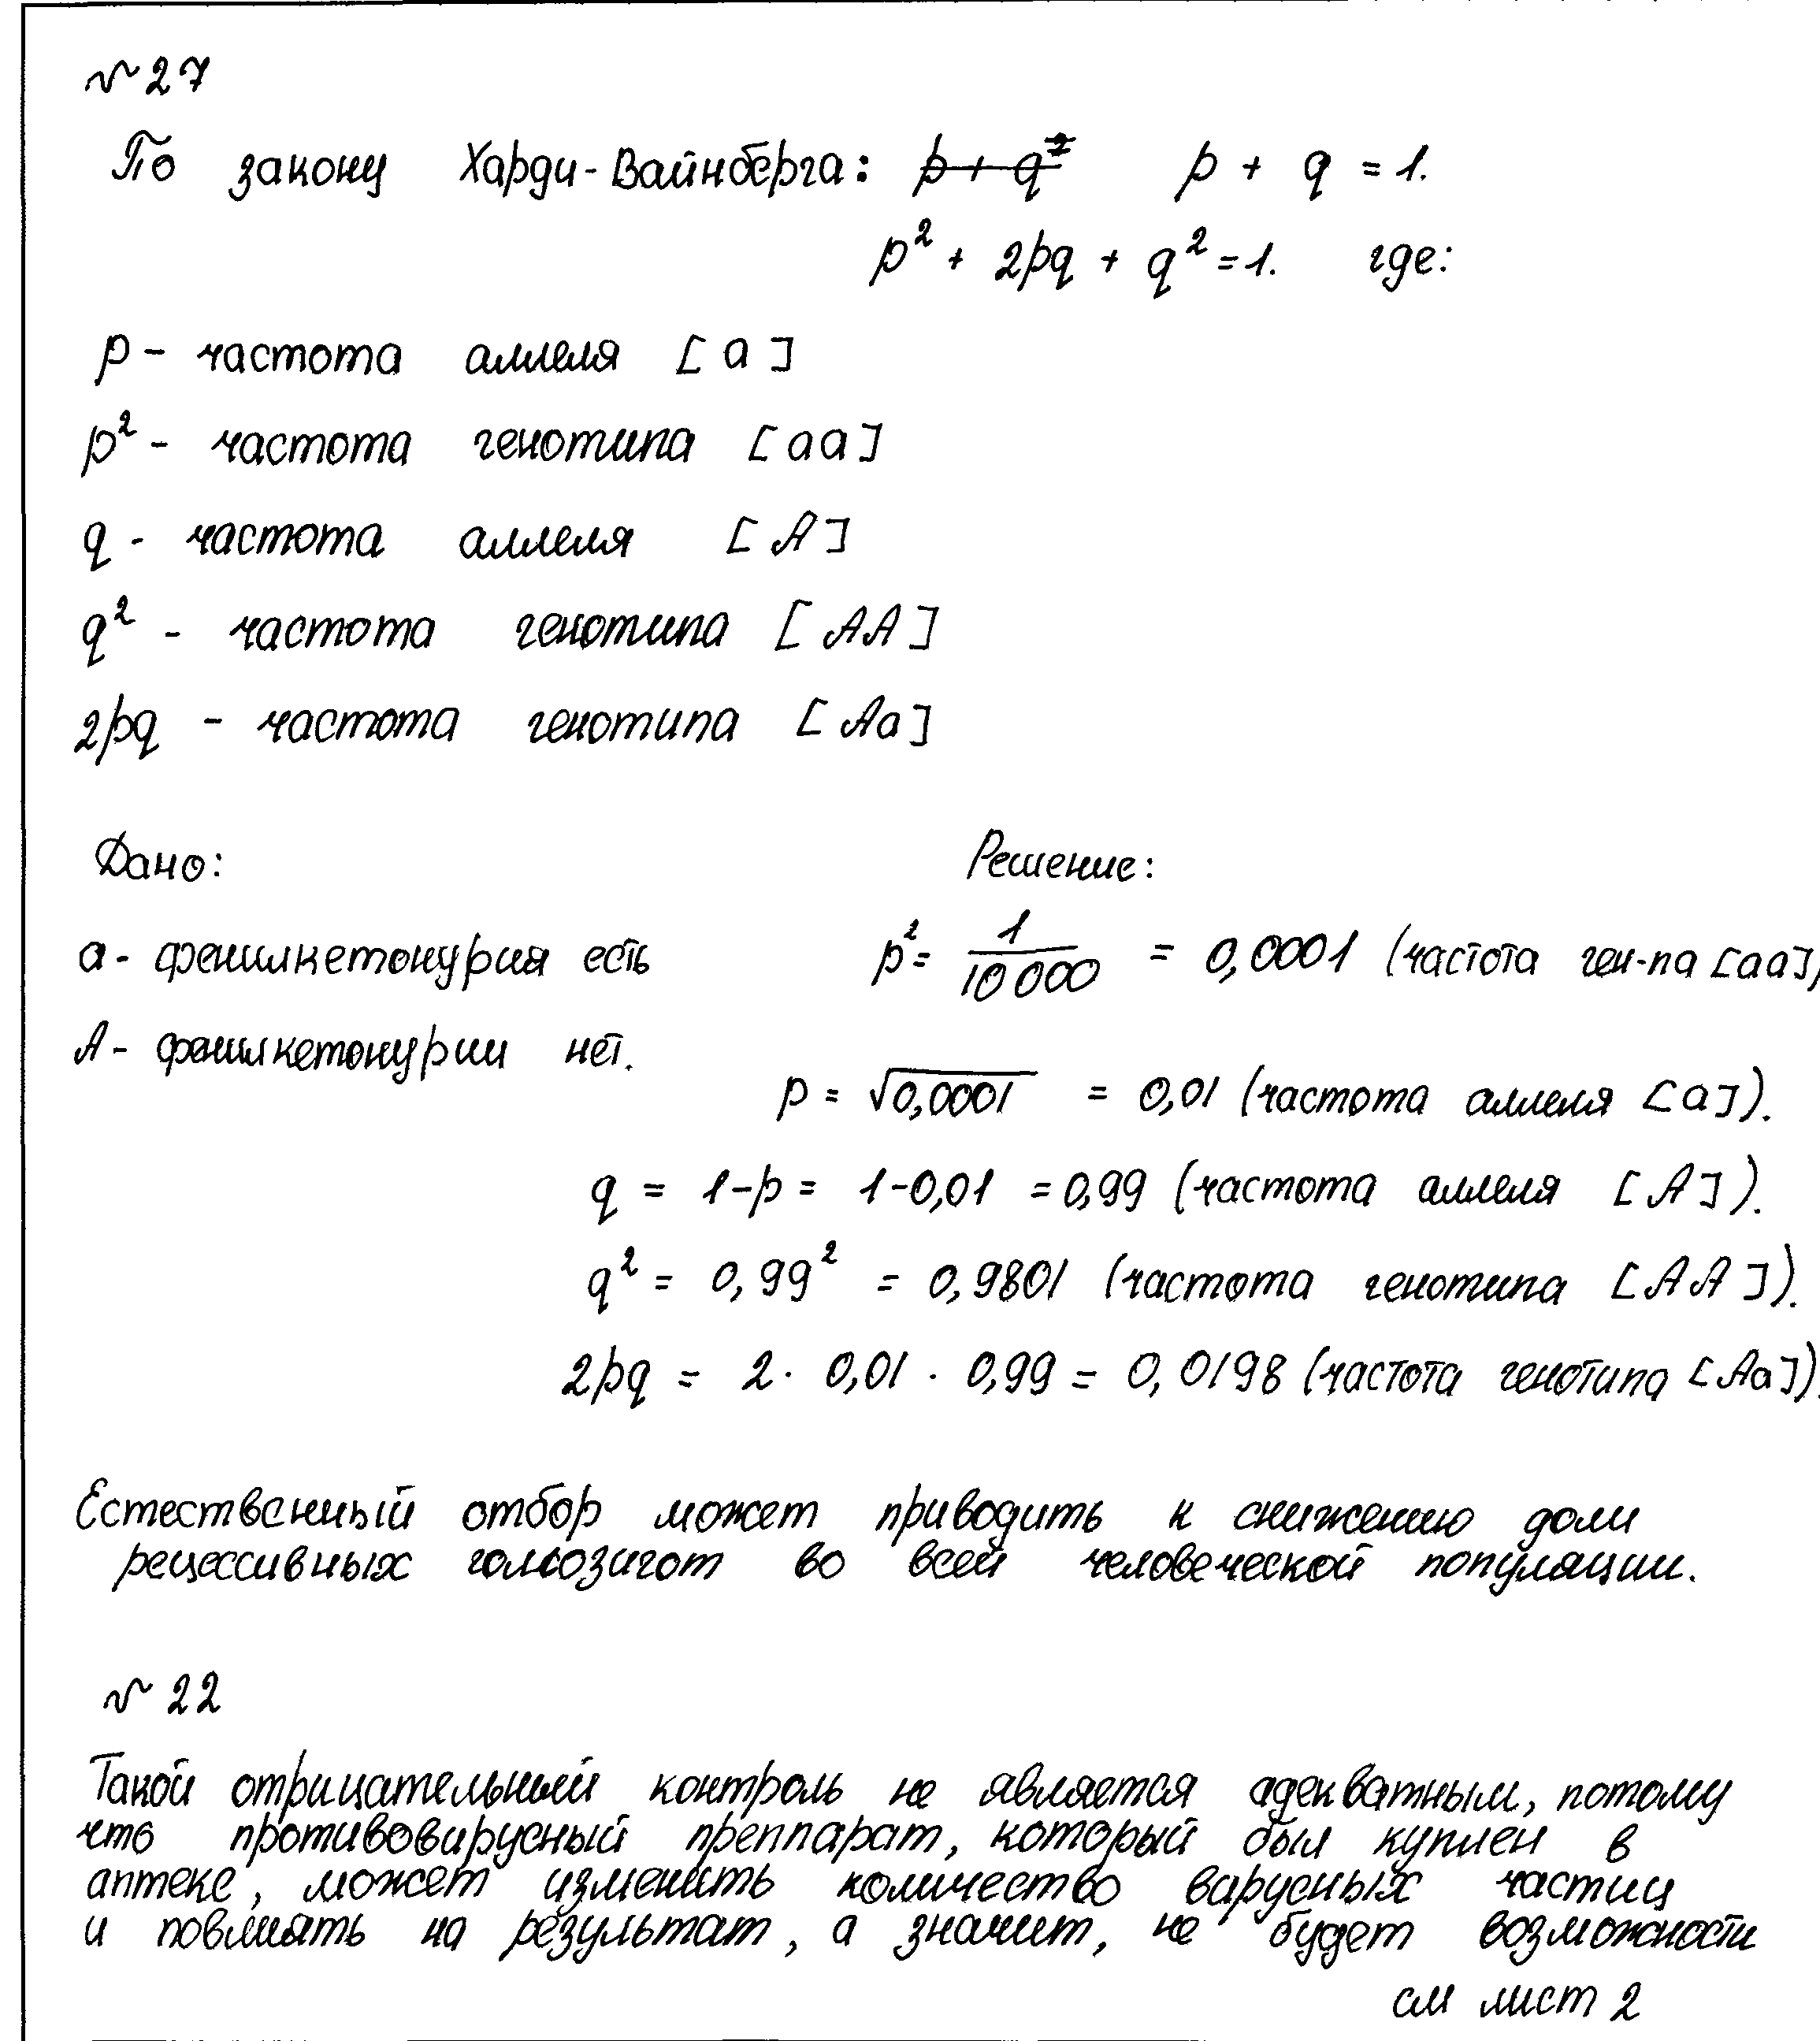 № 27
По закону Харди-Вайнберга: ~~p + q²~~ p + q = 1.
p² + 2pq + q² = 1. где:
p - частота аллеля [a]
p² - частота генотипа [aa]
q - частота аллеля [A]
q² - частота генотипа [AA]
2pq - частота генотипа [Aa]
Дано: Решение:
a - фенилкетонурия есть p² = 1/10 000 = 0,0001 (частота ген-па [aa])
A - фенилкетонурии нет.
p = √0,0001 = 0,01 (частота аллеля [a]).
q = 1-p = 1-0,01 = 0,99 (частота аллеля [A]).
q² = 0,99² = 0,9801 (частота генотипа [AA]).
2pq = 2 · 0,01 · 0,99 = 0,0198 (частота генотипа [Aa]).
Естественный отбор может приводить к снижению доли
рецессивных гомозигот во всей человеческой популяции.
№ 22
Такой отрицательный контроль не является адекватным, потому
что противовирусный преппарат, который был куплен в
аптеке, может изменить количество варусных частиц
и повлиять на результат, а значит, не будет возможности
см лист 2